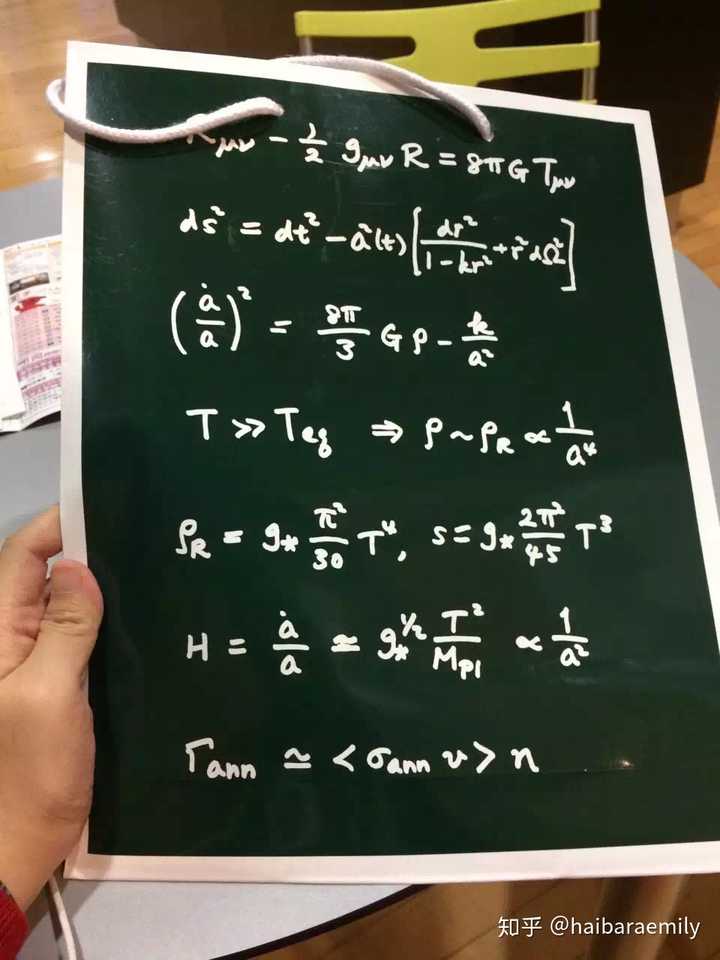 R_{μν} - \frac{1}{2} g_{μν} R = 8πG T_{μν}
ds² = dt² - a²(t) [ \frac{dr²}{1 - kr²} + r² dΩ² ]
( \frac{ȧ}{a} )² = \frac{8π}{3} G ρ - \frac{k}{a²}
T ≫ T_{eq} ⇒ ρ ~ ρ_R ∝ \frac{1}{a⁴}
ρ_R = g_* \frac{π²}{30} T⁴, s = g_* \frac{2π²}{45} T³
H = \frac{ȧ}{a} ≃ g_*^{1/2} \frac{T²}{M_{Pl}} ∝ \frac{1}{a²}
Γ_{ann} ≃ <σ_{ann} v> n
知乎 @haibaraemily